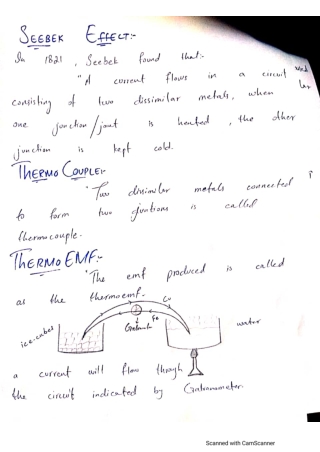 SEEBEK EFFECT:-
In 1821, Seebek found that:-
"A current flows in a circuit
consisting of two dissimilar metals, when
one junction/joint is heated, the other
junction is kept cold.
THERMO COUPLE:-
"Two dissimilar metals connected
to form two is called
thermocouple.
THERMO EMF:-
"The emf produced is called
as the thermoemf.
Cu
Fe
ice-cubes
water
a current will flow through
the circuit indicated by
Scanned with CamScanner